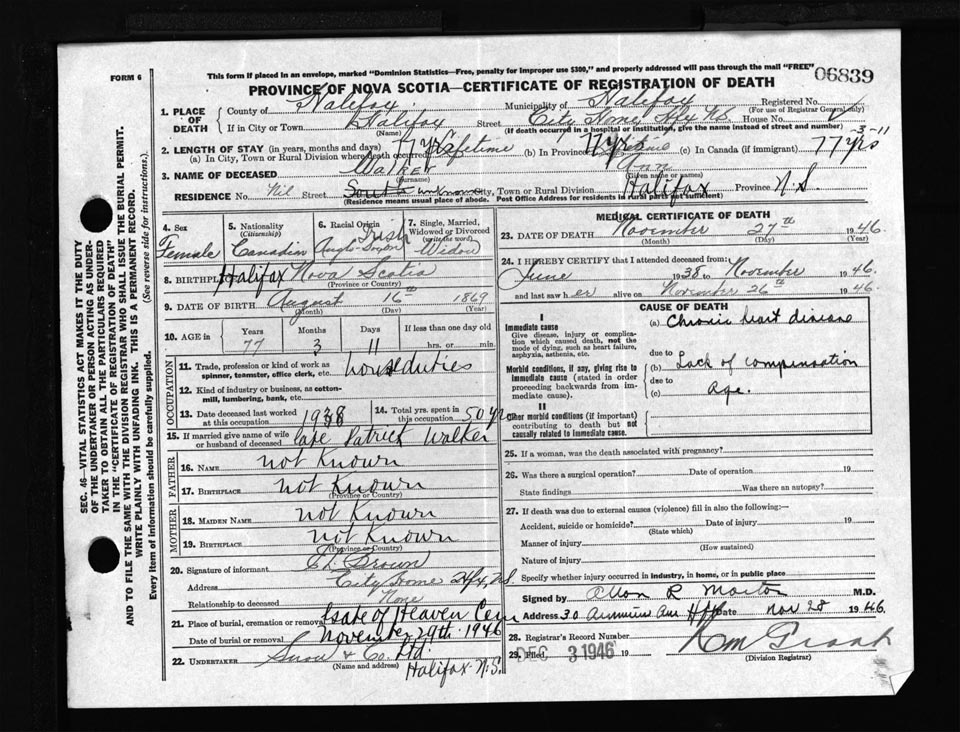 FORM 6
This form if placed in an envelope, marked "Dominion Statistics—Free, penalty for improper use $300," and properly addressed will pass through the mail "FREE"
06839
PROVINCE OF NOVA SCOTIA—CERTIFICATE OF REGISTRATION OF DEATH
1. PLACE OF DEATH
County of Halifax Municipality of Halifax Registered No.
(For use of Registrar General only)
If in City or Town Halifax Street City Home Hfx NS House No.
(Name) (If death occurred in a hospital or institution, give the name instead of street and number)
2. LENGTH OF STAY (in years, months and days)
(a) In City, Town or Rural Division where death occurred 77 yrs Lifetime (b) In Province 77 yrs (c) In Canada (if immigrant) 77 yrs -3-11
3. NAME OF DECEASED Walker Ann
(Surname) (Given name or names)
RESIDENCE No. Nil Street South unknown City, Town or Rural Division Halifax Province N.S.
(Residence means usual place of abode. Post Office Address for residents in rural parts not sufficient)
4. Sex
Female
5. Nationality
(Citizenship)
Canadian
6. Racial Origin
Irish
Anglo-Saxon
7. Single, Married, Widowed or Divorced
(write the word)
Widow
8. BIRTHPLACE Halifax Nova Scotia
(Province or Country)
9. DATE OF BIRTH August 16th 1869
(Month) (Day) (Year)
10. AGE in
Years Months Days If less than one day old
77 3 11 hrs. or min.
OCCUPATION
11. Trade, profession or kind of work as spinner, teamster, office clerk, etc. house duties
12. Kind of industry or business, as cotton-mill, lumbering, bank, etc.
13. Date deceased last worked at this occupation 1938
14. Total yrs. spent in this occupation 50 yrs
15. If married give name of wife or husband of deceased Patrick Walker
FATHER
16. NAME not Known
17. BIRTHPLACE not Known
(Province or Country)
MOTHER
18. MAIDEN NAME not Known
19. BIRTHPLACE not Known
(Province or Country)
20. Signature of informant Brown
Address City Home Hfx, N.S.
Relationship to deceased None
21. Place of burial, cremation or removal Gate of Heaven Cem
Date of burial or removal November 29th. 1946
22. UNDERTAKER Snow & Co. Ltd.
(Name and address) Halifax N.S.
MEDICAL CERTIFICATE OF DEATH
23. DATE OF DEATH November 27th 1946.
(Month) (Day) (Year)
24. I HEREBY CERTIFY that I attended deceased from:
June 1938 to November 1946.
and last saw her alive on November 26th 1946.
CAUSE OF DEATH
I
Immediate cause
Give disease, injury or complication which caused death, not the mode of dying, such as heart failure, asphyxia, asthenia, etc.
(a) Chronic heart disease
due to
Morbid conditions, if any, giving rise to immediate cause (stated in order proceeding backwards from immediate cause).
(b) Lack of compensation
due to
(c) Age.
II
Other morbid conditions (if important) contributing to death but not causally related to immediate cause.
25. If a woman, was the death associated with pregnancy?
26. Was there a surgical operation? Date of operation 19
State findings Was there an autopsy?
27. If death was due to external causes (violence) fill in also the following:—
Accident, suicide or homicide? Date of injury 19
(State which)
Manner of injury
(How sustained)
Nature of injury
Specify whether injury occurred in industry, in home, or in public place
Signed by Allan R. Morton M.D.
Address 30 Hfx Date Nov 28 1946
28. Registrar's Record Number
29. Filed DEC 3 1946 19
(Division Registrar)
SEC. 46—VITAL STATISTICS ACT MAKES IT THE DUTY
OF THE UNDERTAKER OR PERSON ACTING AS UNDER-
TAKER TO OBTAIN ALL THE PARTICULARS REQUIRED
IN THE "CERTIFICATE OF REGISTRATION OF DEATH"
AND TO FILE THE SAME WITH THE DIVISION REGISTRAR WHO SHALL ISSUE THE BURIAL PERMIT.
WRITE PLAINLY WITH UNFADING INK. THIS IS A PERMANENT RECORD.
Every item of information should be carefully supplied. (See reverse side for instructions.)